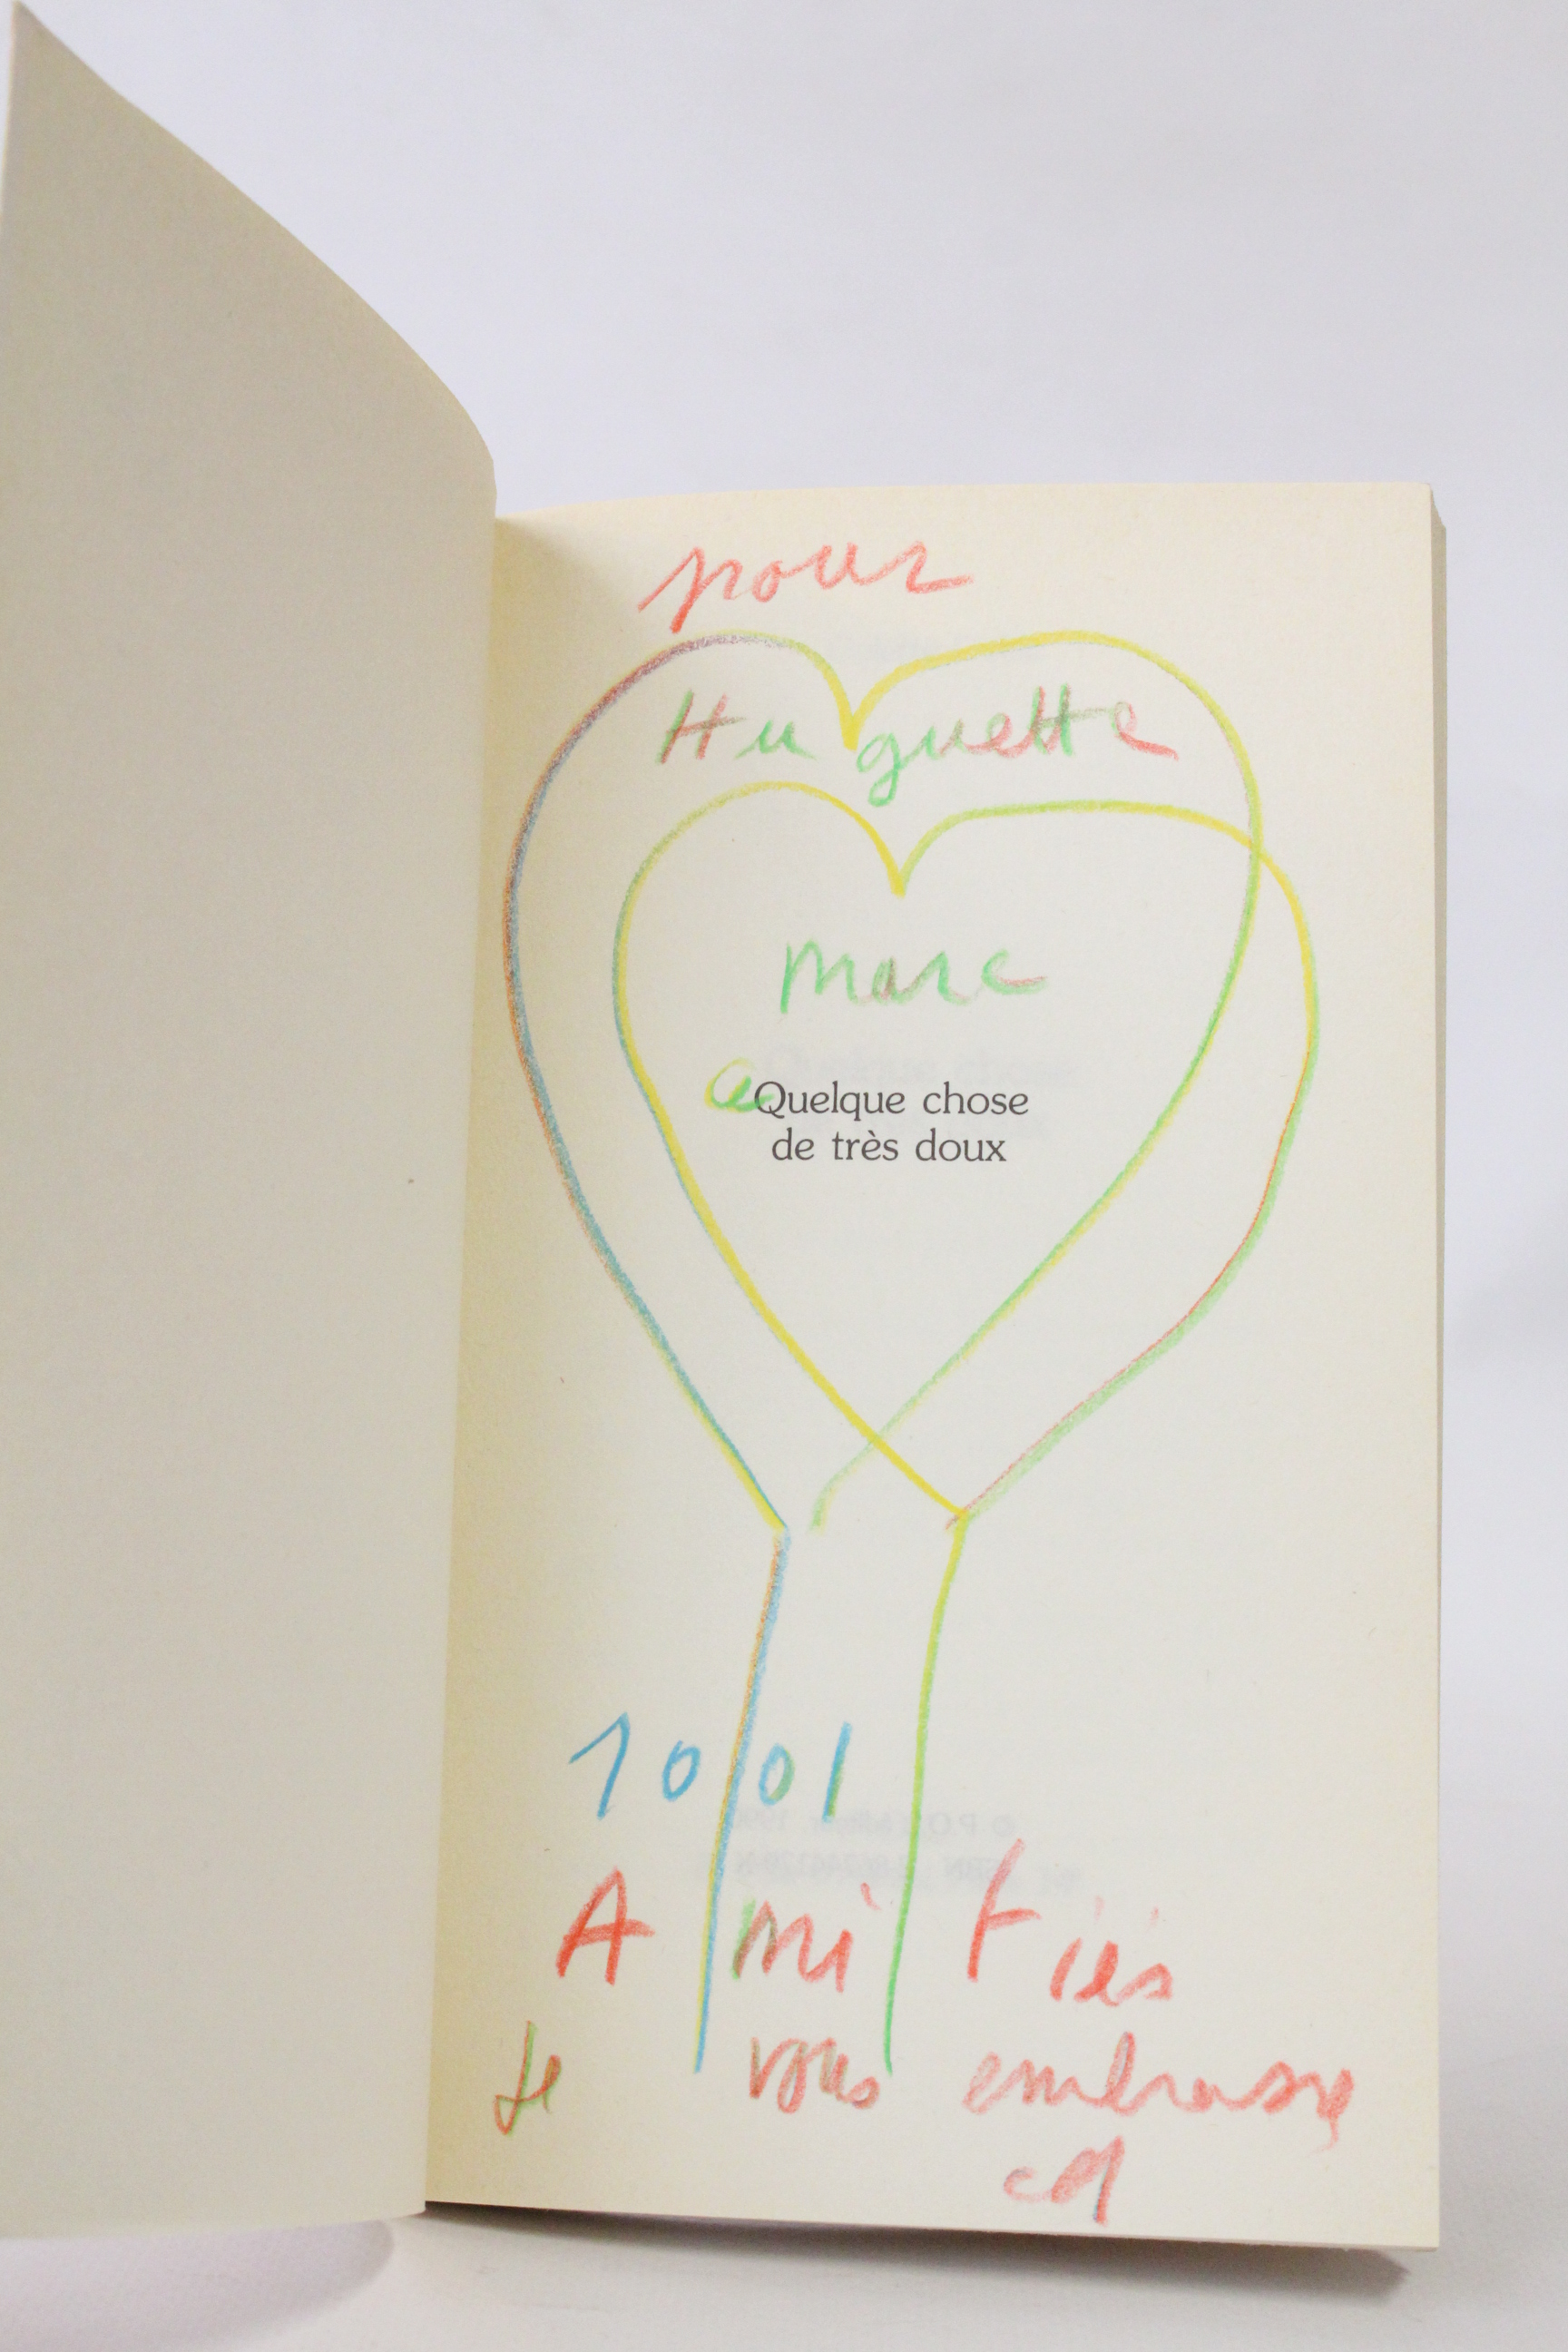 pour
Huguette
Marc
ce Quelque chose
de très doux
1001
Amitiés
Je vous embrasse